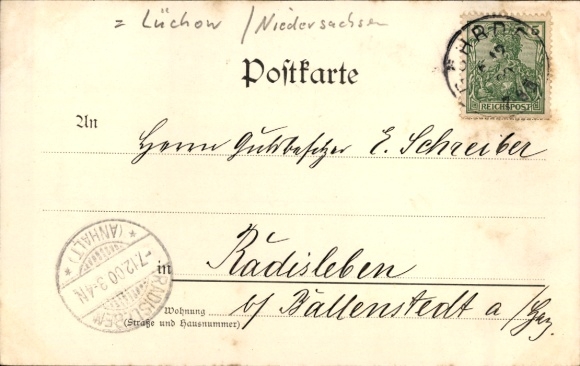 = Lüchow / Niedersachsen
5
REICHSPOST
Postkarte
An
Herrn Gutsbesitzer E. Schreiber
in Radisleben
b/ Ballenstedt a/
Wohnung
(Straße und Hausnummer)
* (ANHALT) *
7.12.00.3-4N.